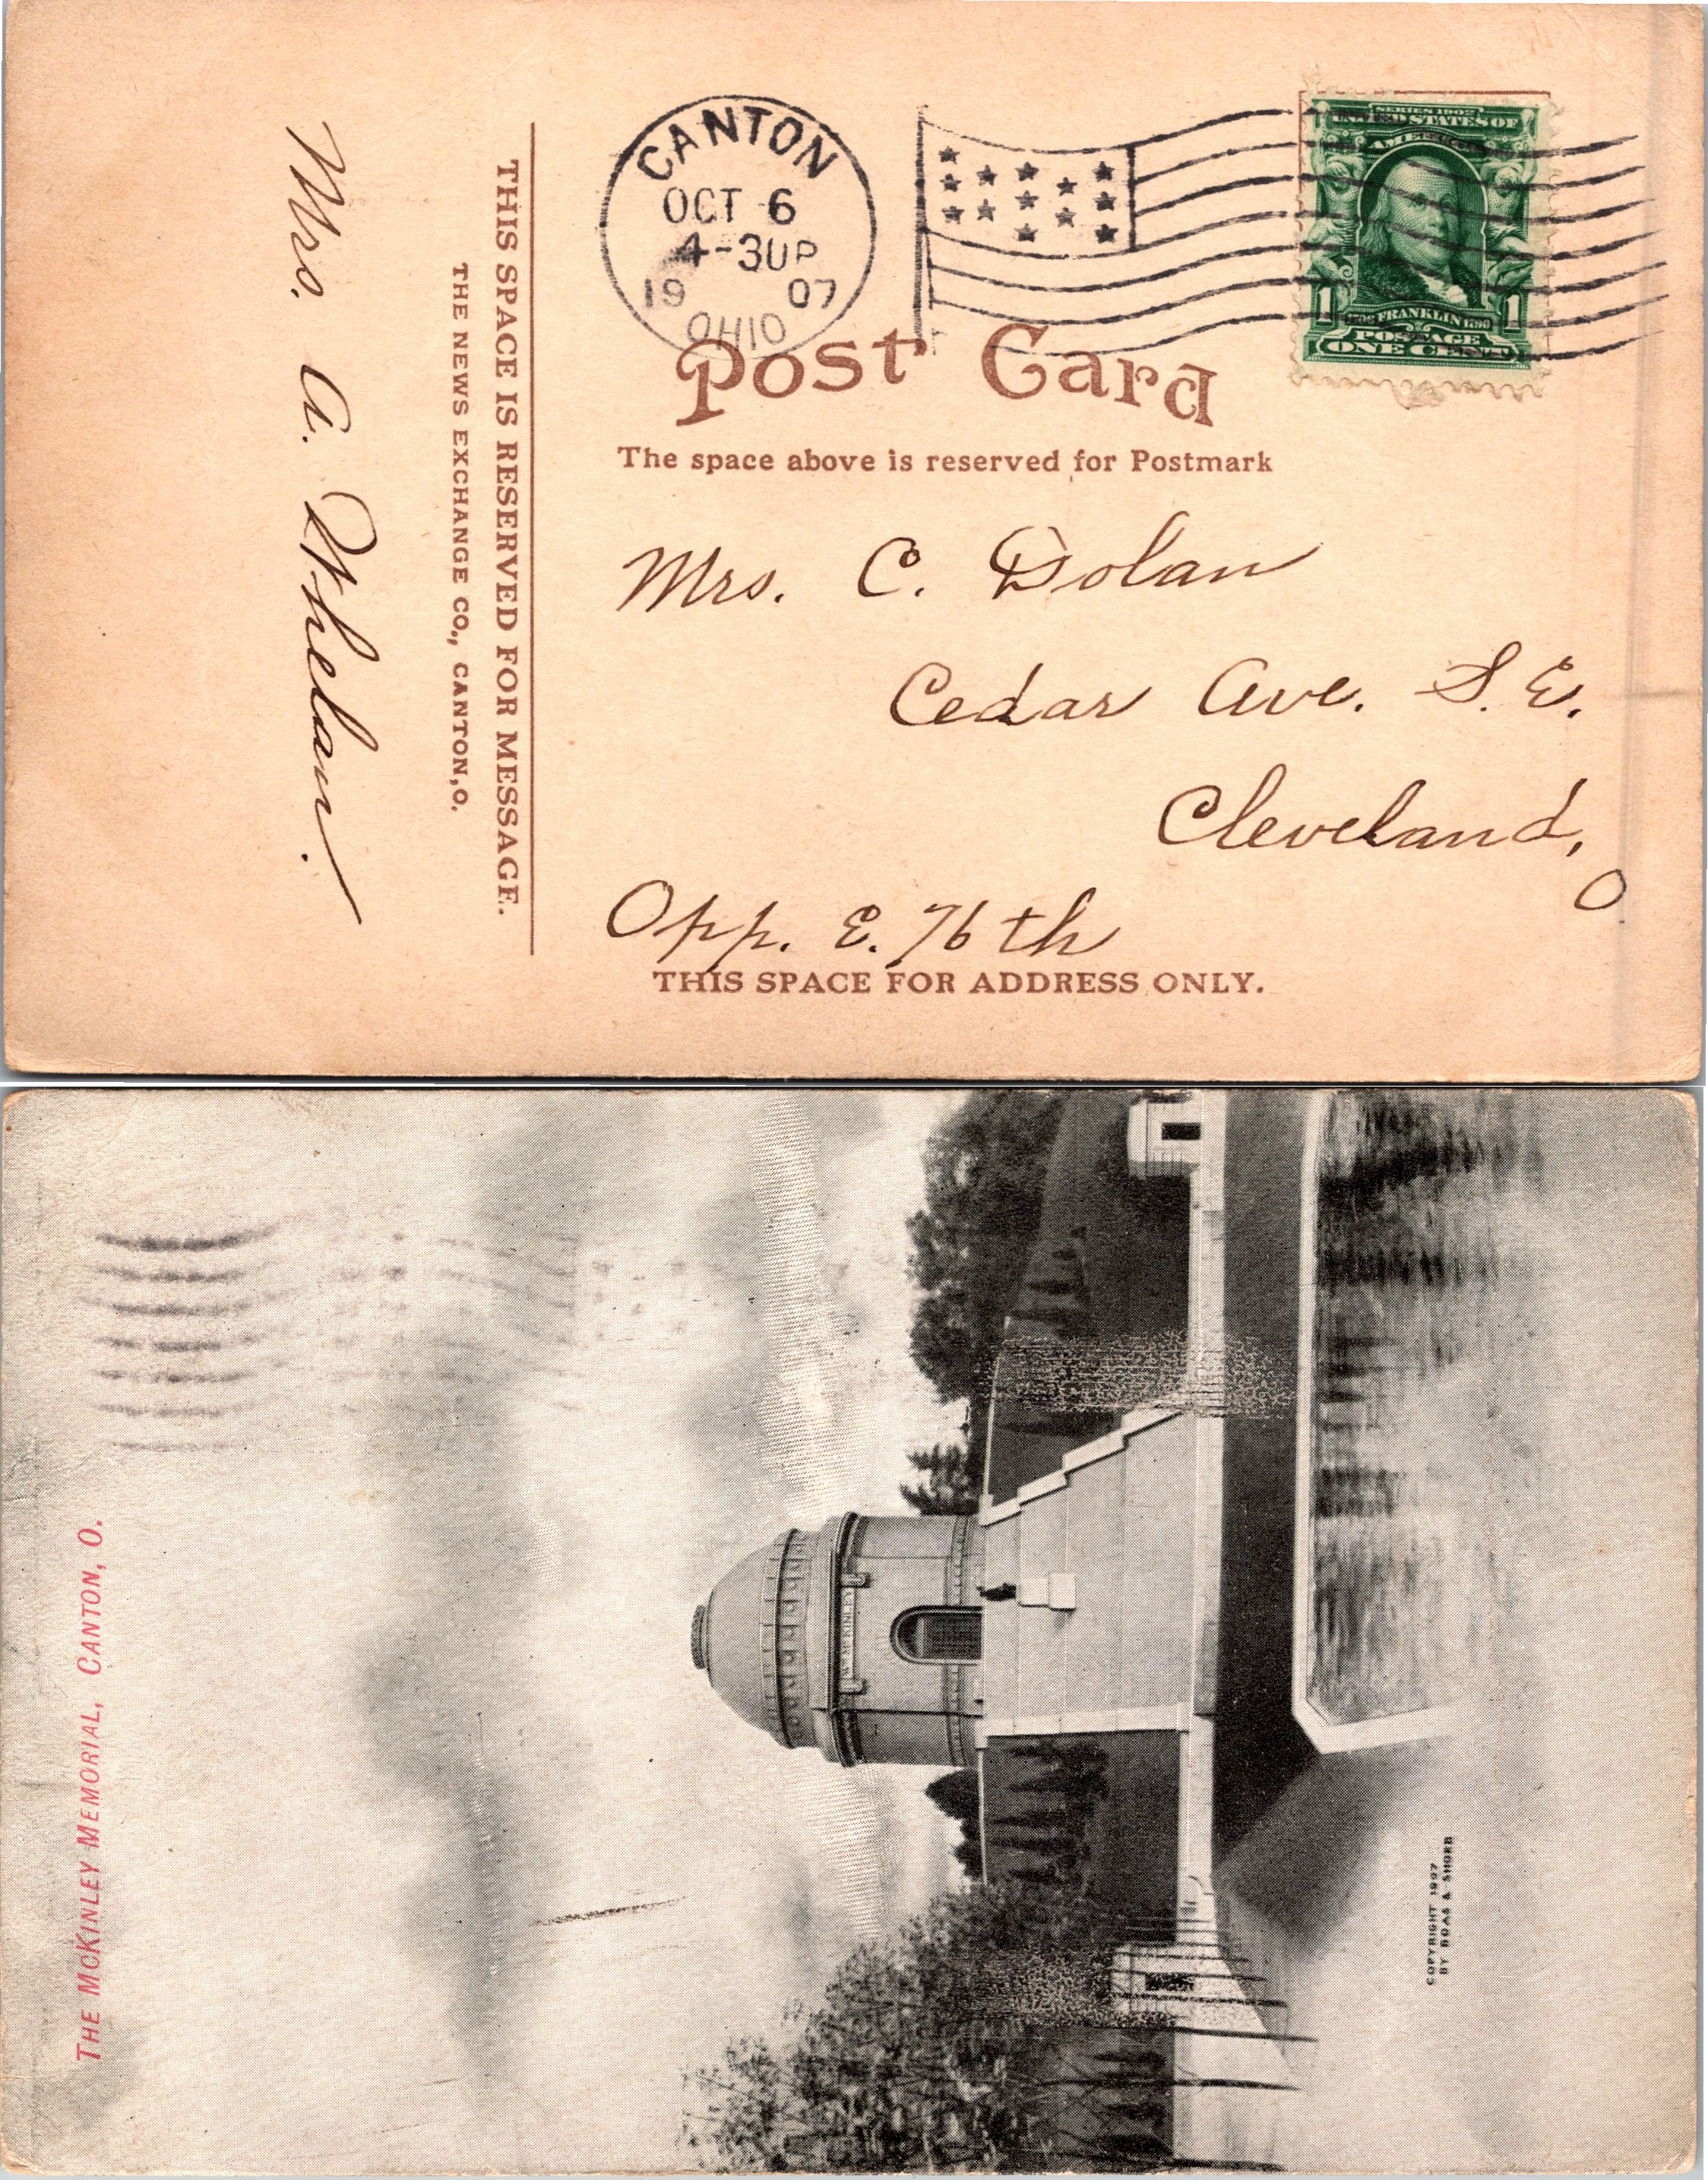 CANTON
OCT 6
4-30P
19 07
OHIO
SERIES 1902
UNITED STATES OF
AMERICA
1 1
1706 FRANKLIN 1790
POSTAGE
ONE CENT
Post Card
The space above is reserved for Postmark
Mrs. C. Dolan
Cedar Ave. S.E.
Cleveland,
O.
Opp. E. 76th
THIS SPACE FOR ADDRESS ONLY.
THIS SPACE IS RESERVED FOR MESSAGE.
THE NEWS EXCHANGE CO., CANTON, O.
Mrs. A. Whelan.
THE MCKINLEY MEMORIAL, CANTON, O.
WM MCKINLEY
COPYRIGHT 1907
BY BOAS & SHORB